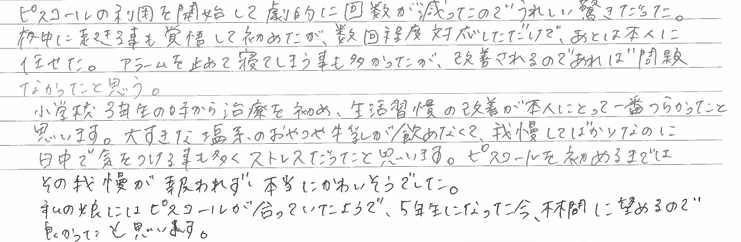 ピスコールの利用を開始して劇的に回数が減ったのでうれしい驚きだった。
夜中に起きる事も覚悟して初めたが、数回程度対応しただけで、あとは本人に
任せた。アラームを止めて寝てしまう事も多かったが、改善されるのであれば問題
なかったと思う。
小学校3年生の時から治療を初め、生活習慣の改善が本人にとって一番つらかったこと
思います。大すきな塩系のおやつや牛乳が飲めなくて、我慢してばかりなのに
日中で気をつける事も多くストレスだったと思います。ピスコールを初めるまでは
その我慢が報われず本当にかわいそうでした。
私の娘にはピスコールが合っていたようで、5年生になった今、林間に望めるので
良かったと思います。